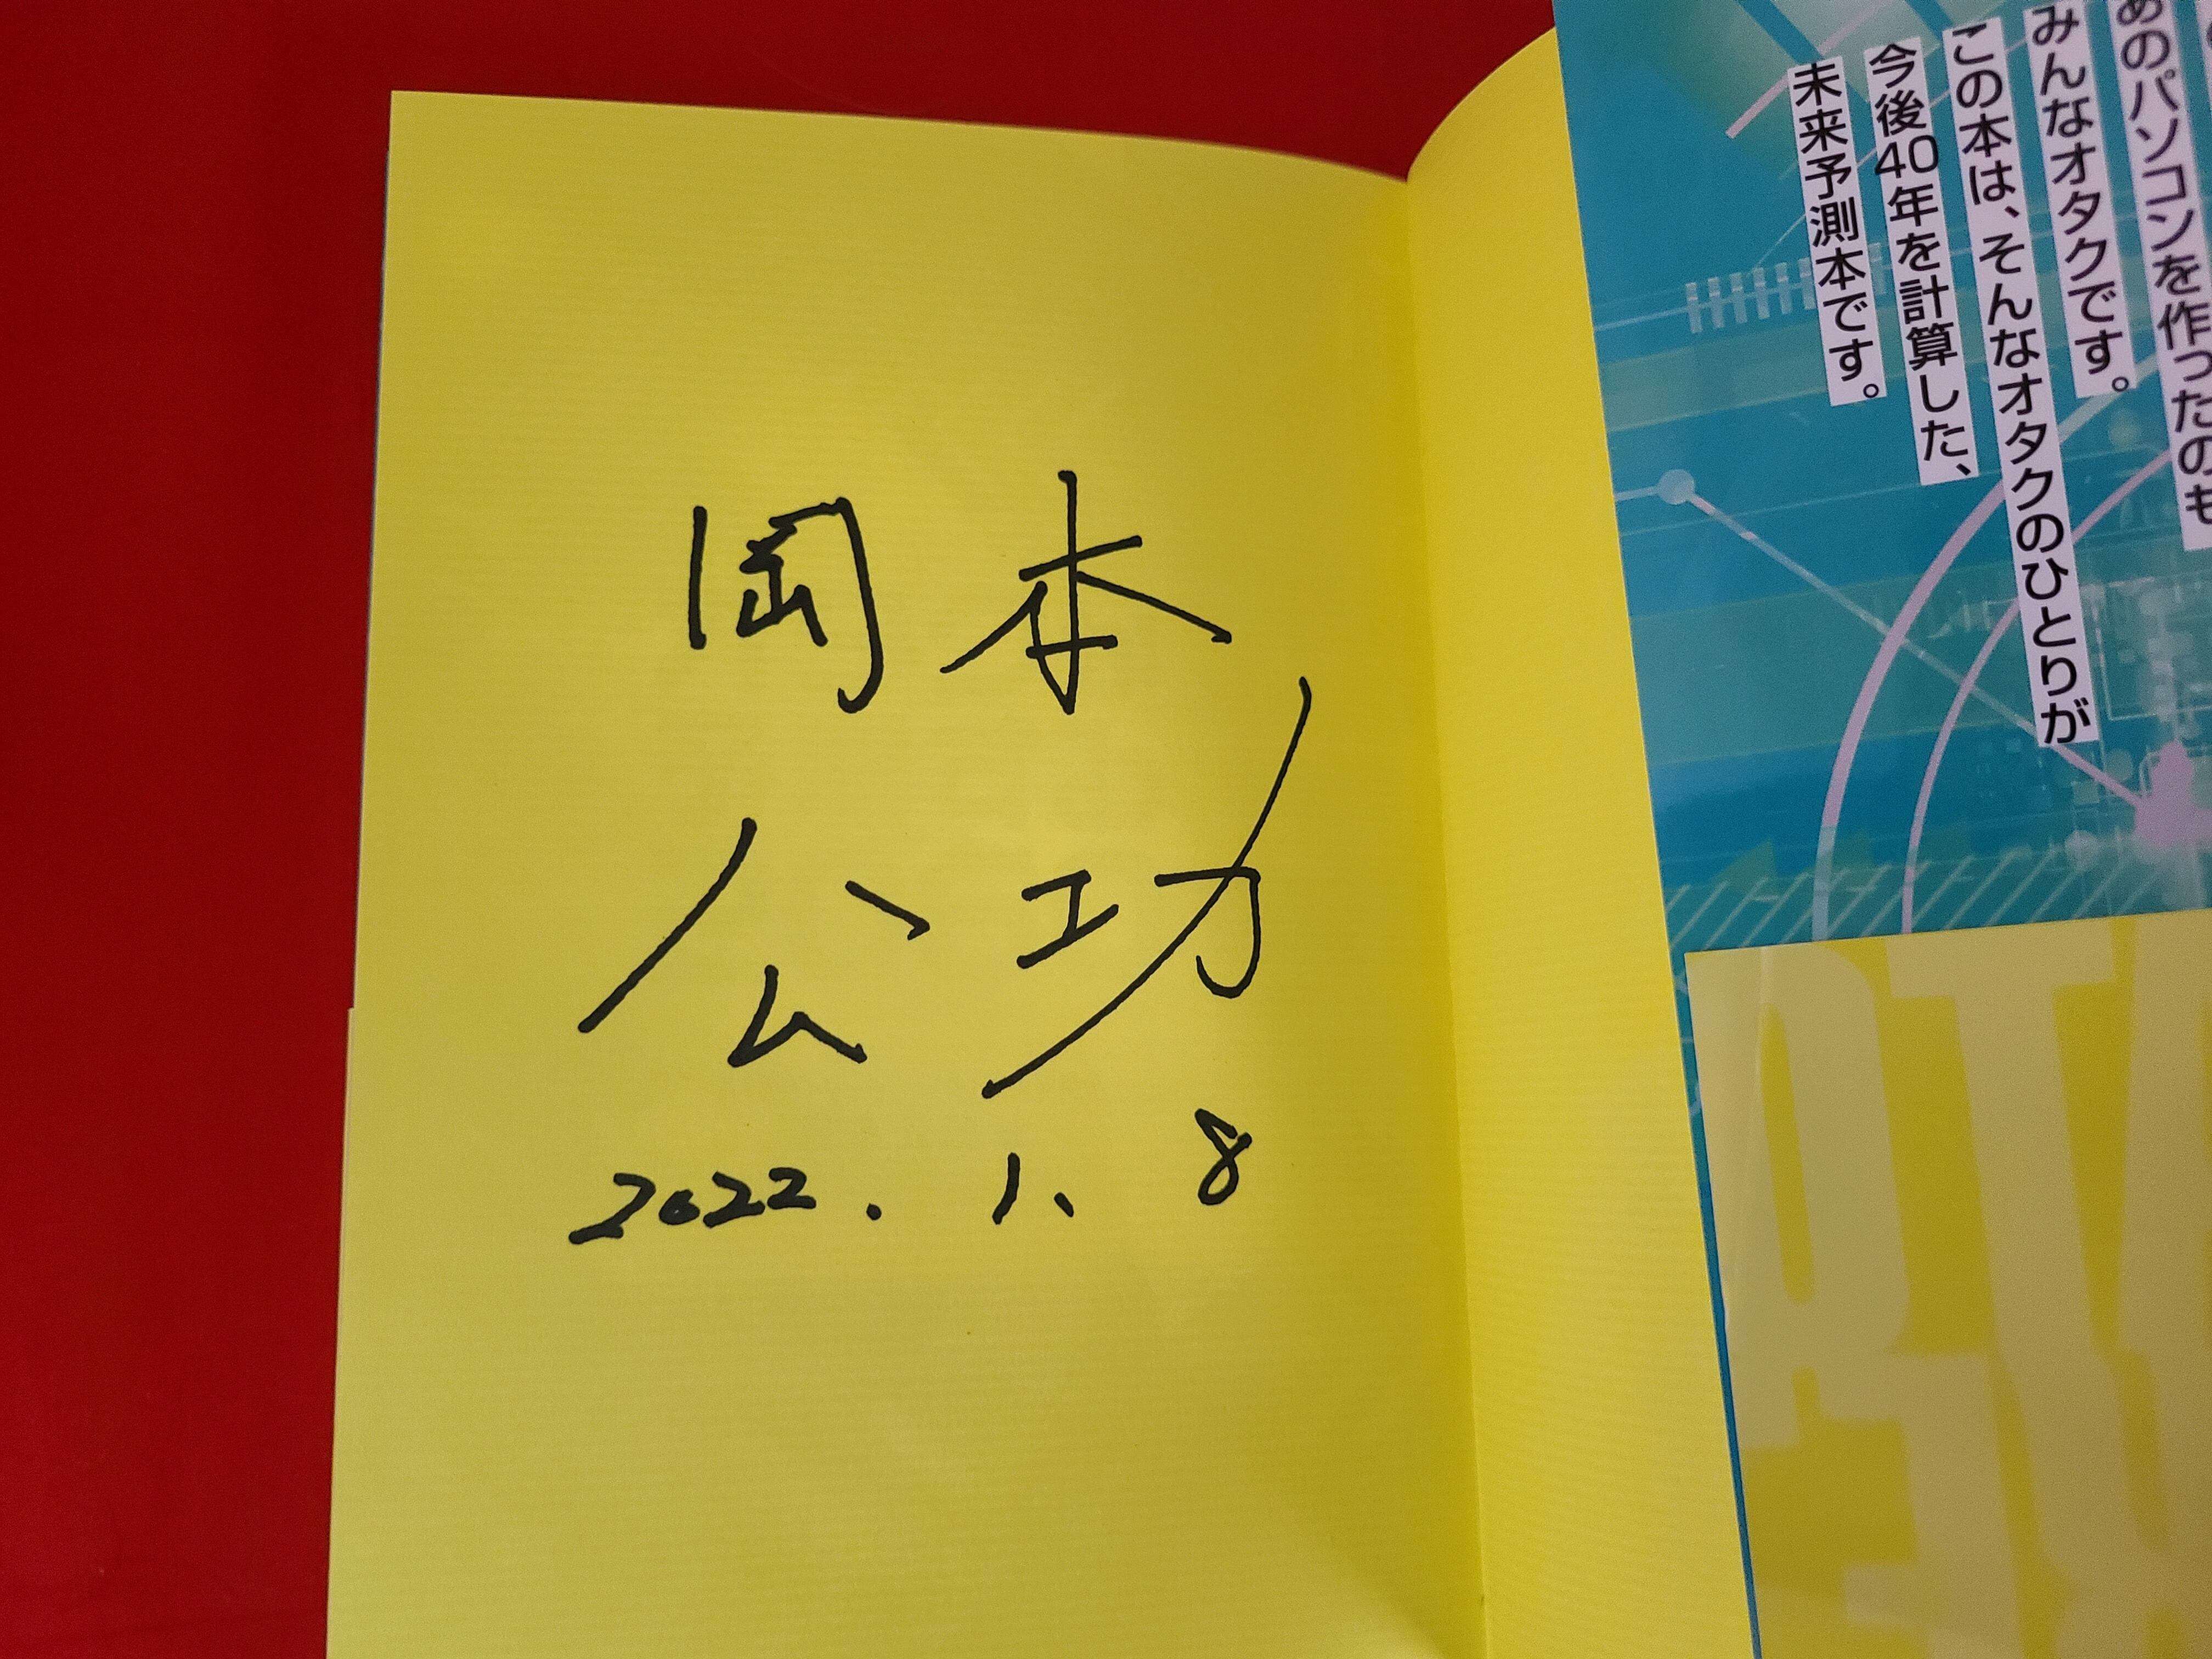 岡本
公功
2022. 1. 8
あのパソコンを作ったのも
みんなオタクです。
この本は、そんなオタクのひとりが
今後40年を計算した、
未来予測本です。
OTA